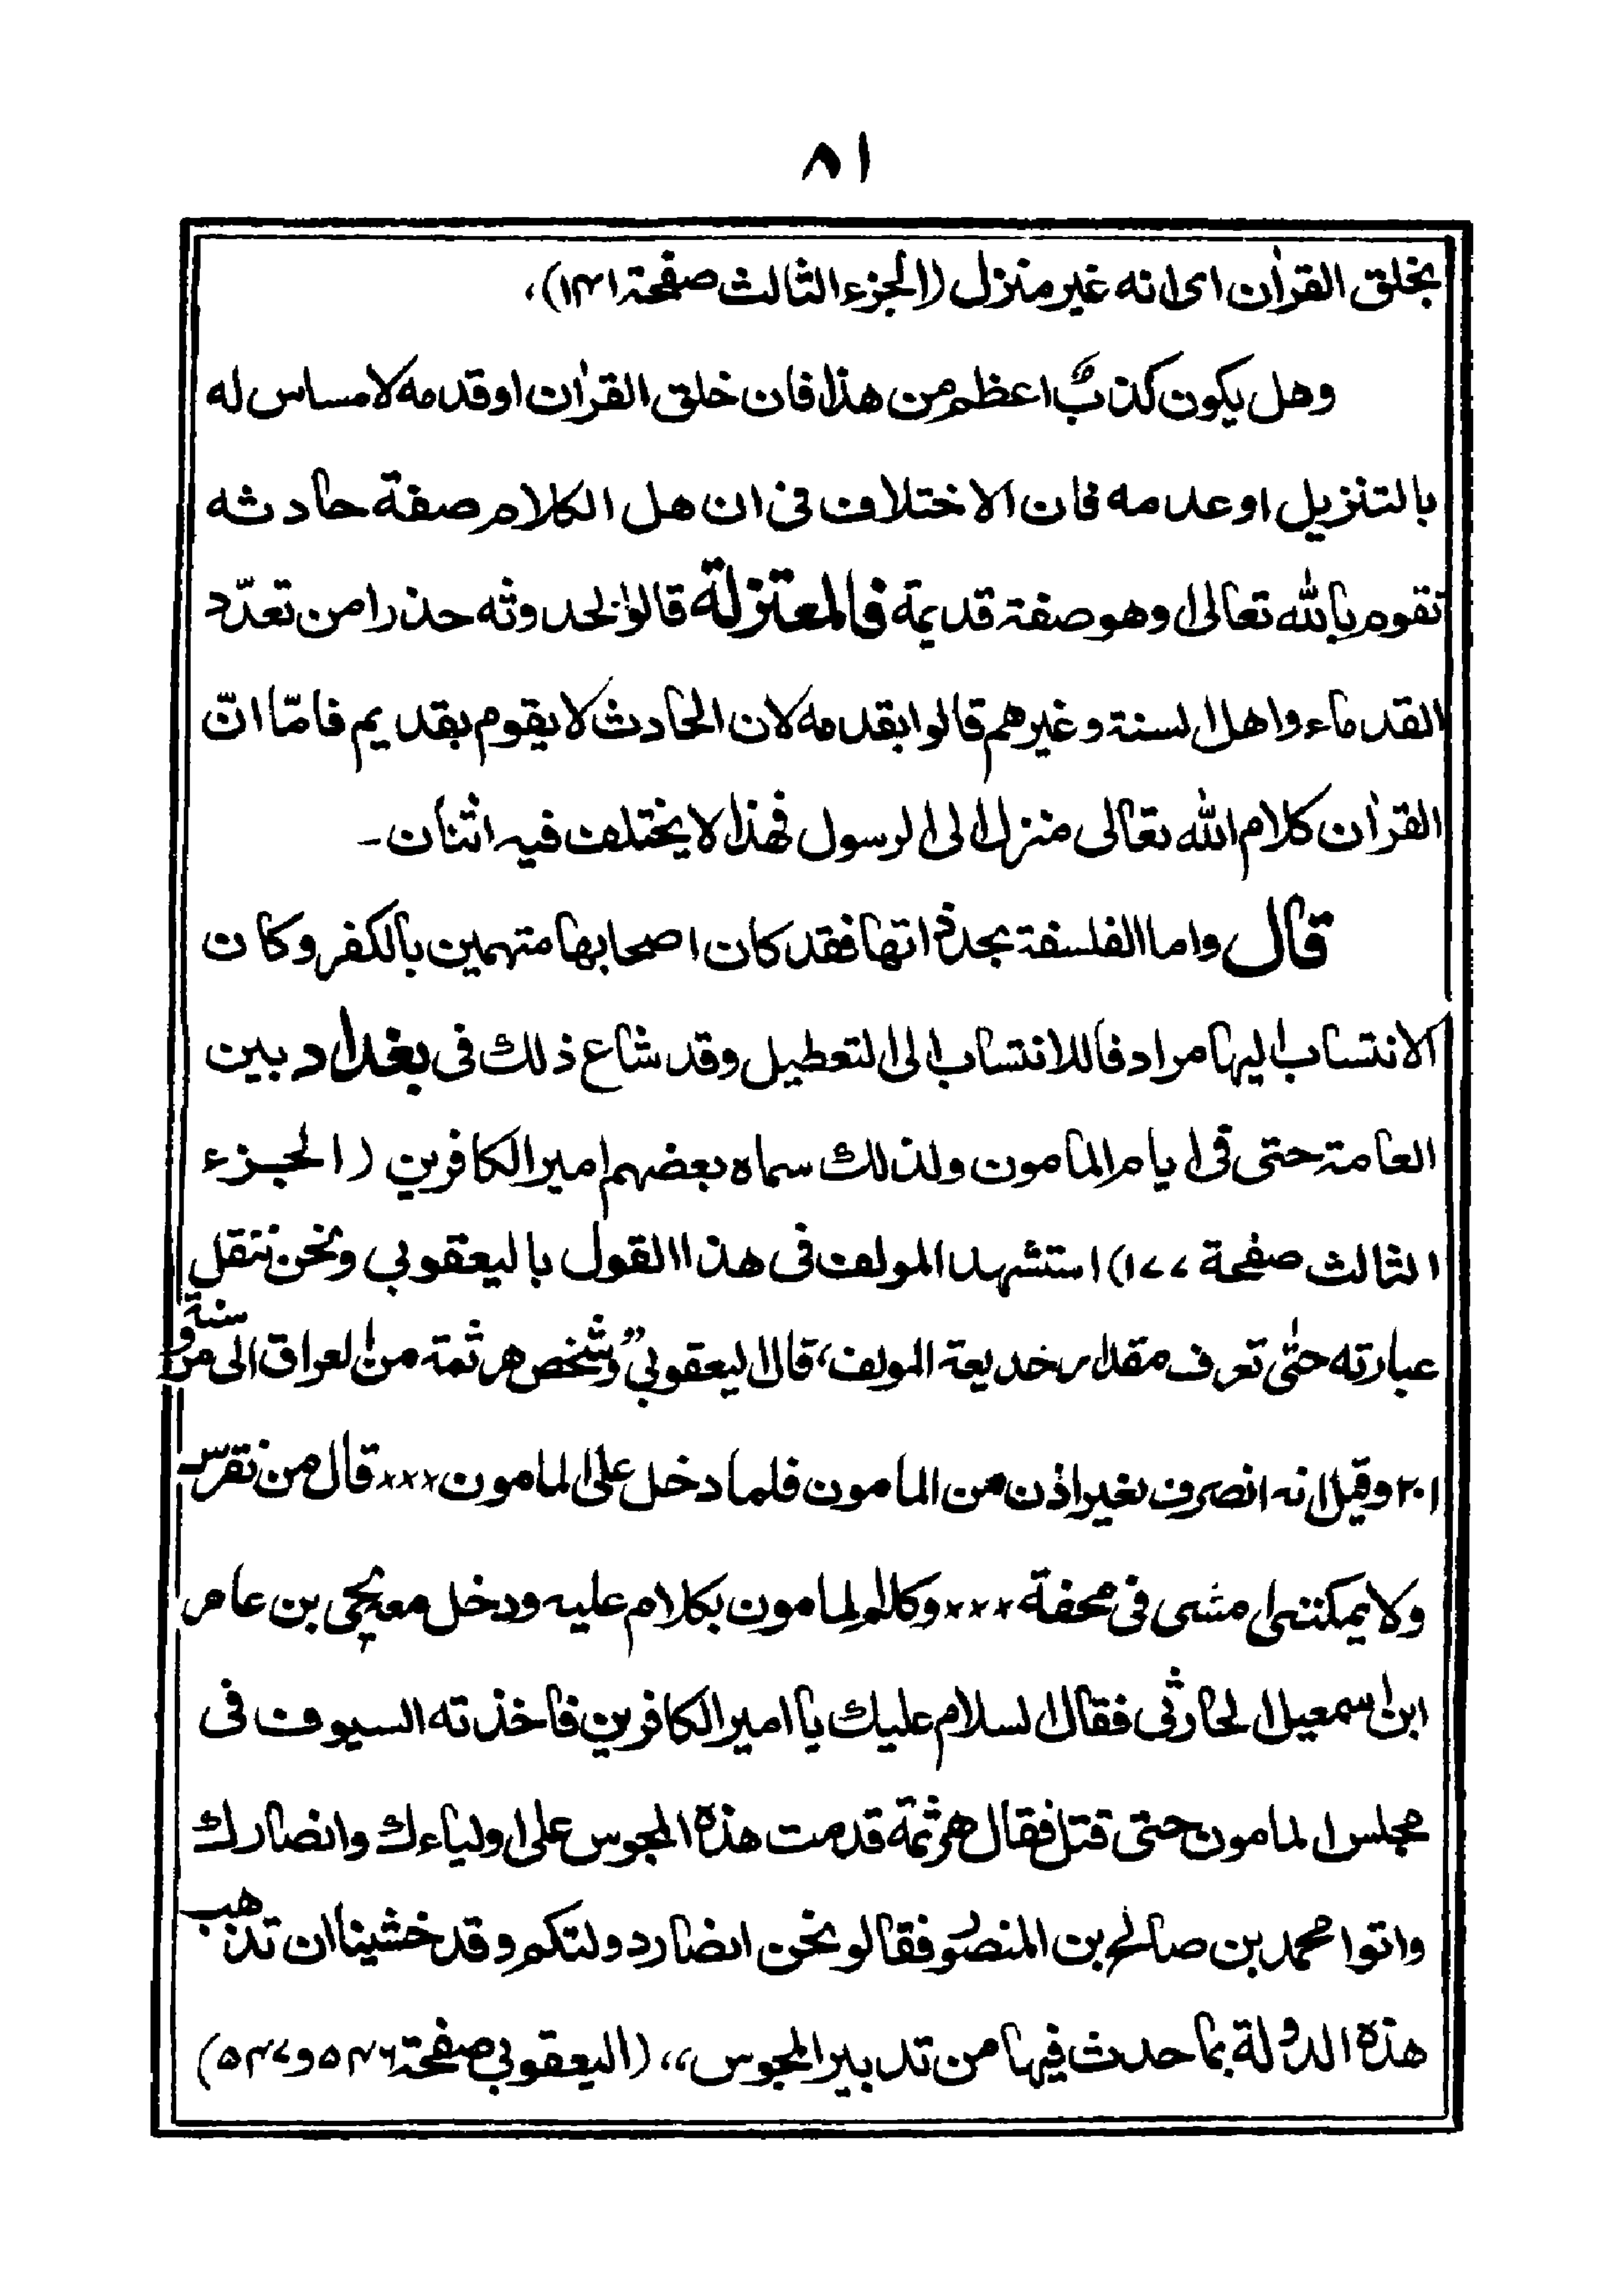 ٨١
بخلق القرآن اى انه غير منزل (الجزء الثالث صفحة ١٤١)،
وهل يكون كذبٌ اعظم من هذا فان خلق القرآن او قدمه لا مساس له
بالتنزيل او عدمه فان الاختلاف فى ان هل الكلام صفة حادثه
تقوم بالله تعالى او هو صفة قديمة فالمعتزلة قالوا بحدوثه حذرا من تعدّد
القدماء واهل السنة وغيرهم قالوا بقدمه لان الحادث لا يقوم بقديم فامّا انّ
القرآن كلام الله تعالى منزل الى الرسول فهذا لا يختلف فيه اثنان -
قال واما الفلسفة بحد ذاتها فقد كان اصحابها متهمين بالكفر وكان
الانتساب اليها مرادفا للانتساب الى التعطيل وقد شاع ذلك فى بغداد بين
العامة حتى فى ايام المامون ولذلك سماه بعضهم امير الكافرين (الجزء
الثالث صفحة ١٧٧) استشهد المولف فى هذا القول باليعقوبي ونحن ننقل
عبارته حتّى تعرف مقدار خديعة المولف، قال اليعقوبي "وشخص هرثمة من العراق الى مرو سنة
٢٠١ وقيل انه انصرف بغير اذن من المامون فلما دخل على المامون ××× قال من نقرس
ولا يمكننى امشى فى محفة ××× وكلم المامون بكلام عليه ودخل معه يحيى بن عامر
ابن اسمعيل الحارثى فقال السلام عليك يا امير الكافرين فاخذته السيوف فى
مجلس المامون حتى قتل فقال هرثمة قدمت هذه المجوس على اولياءك وانصارك
واتوا محمد بن صالح بن المنصور فقالو نحن انصار دولتكم وقد خشينا ان تذهب
هذه الدولة بما حدث فيها من تدبير المجوس،، (اليعقوبي صفحة ٥٤٦ و ٥٤٧)